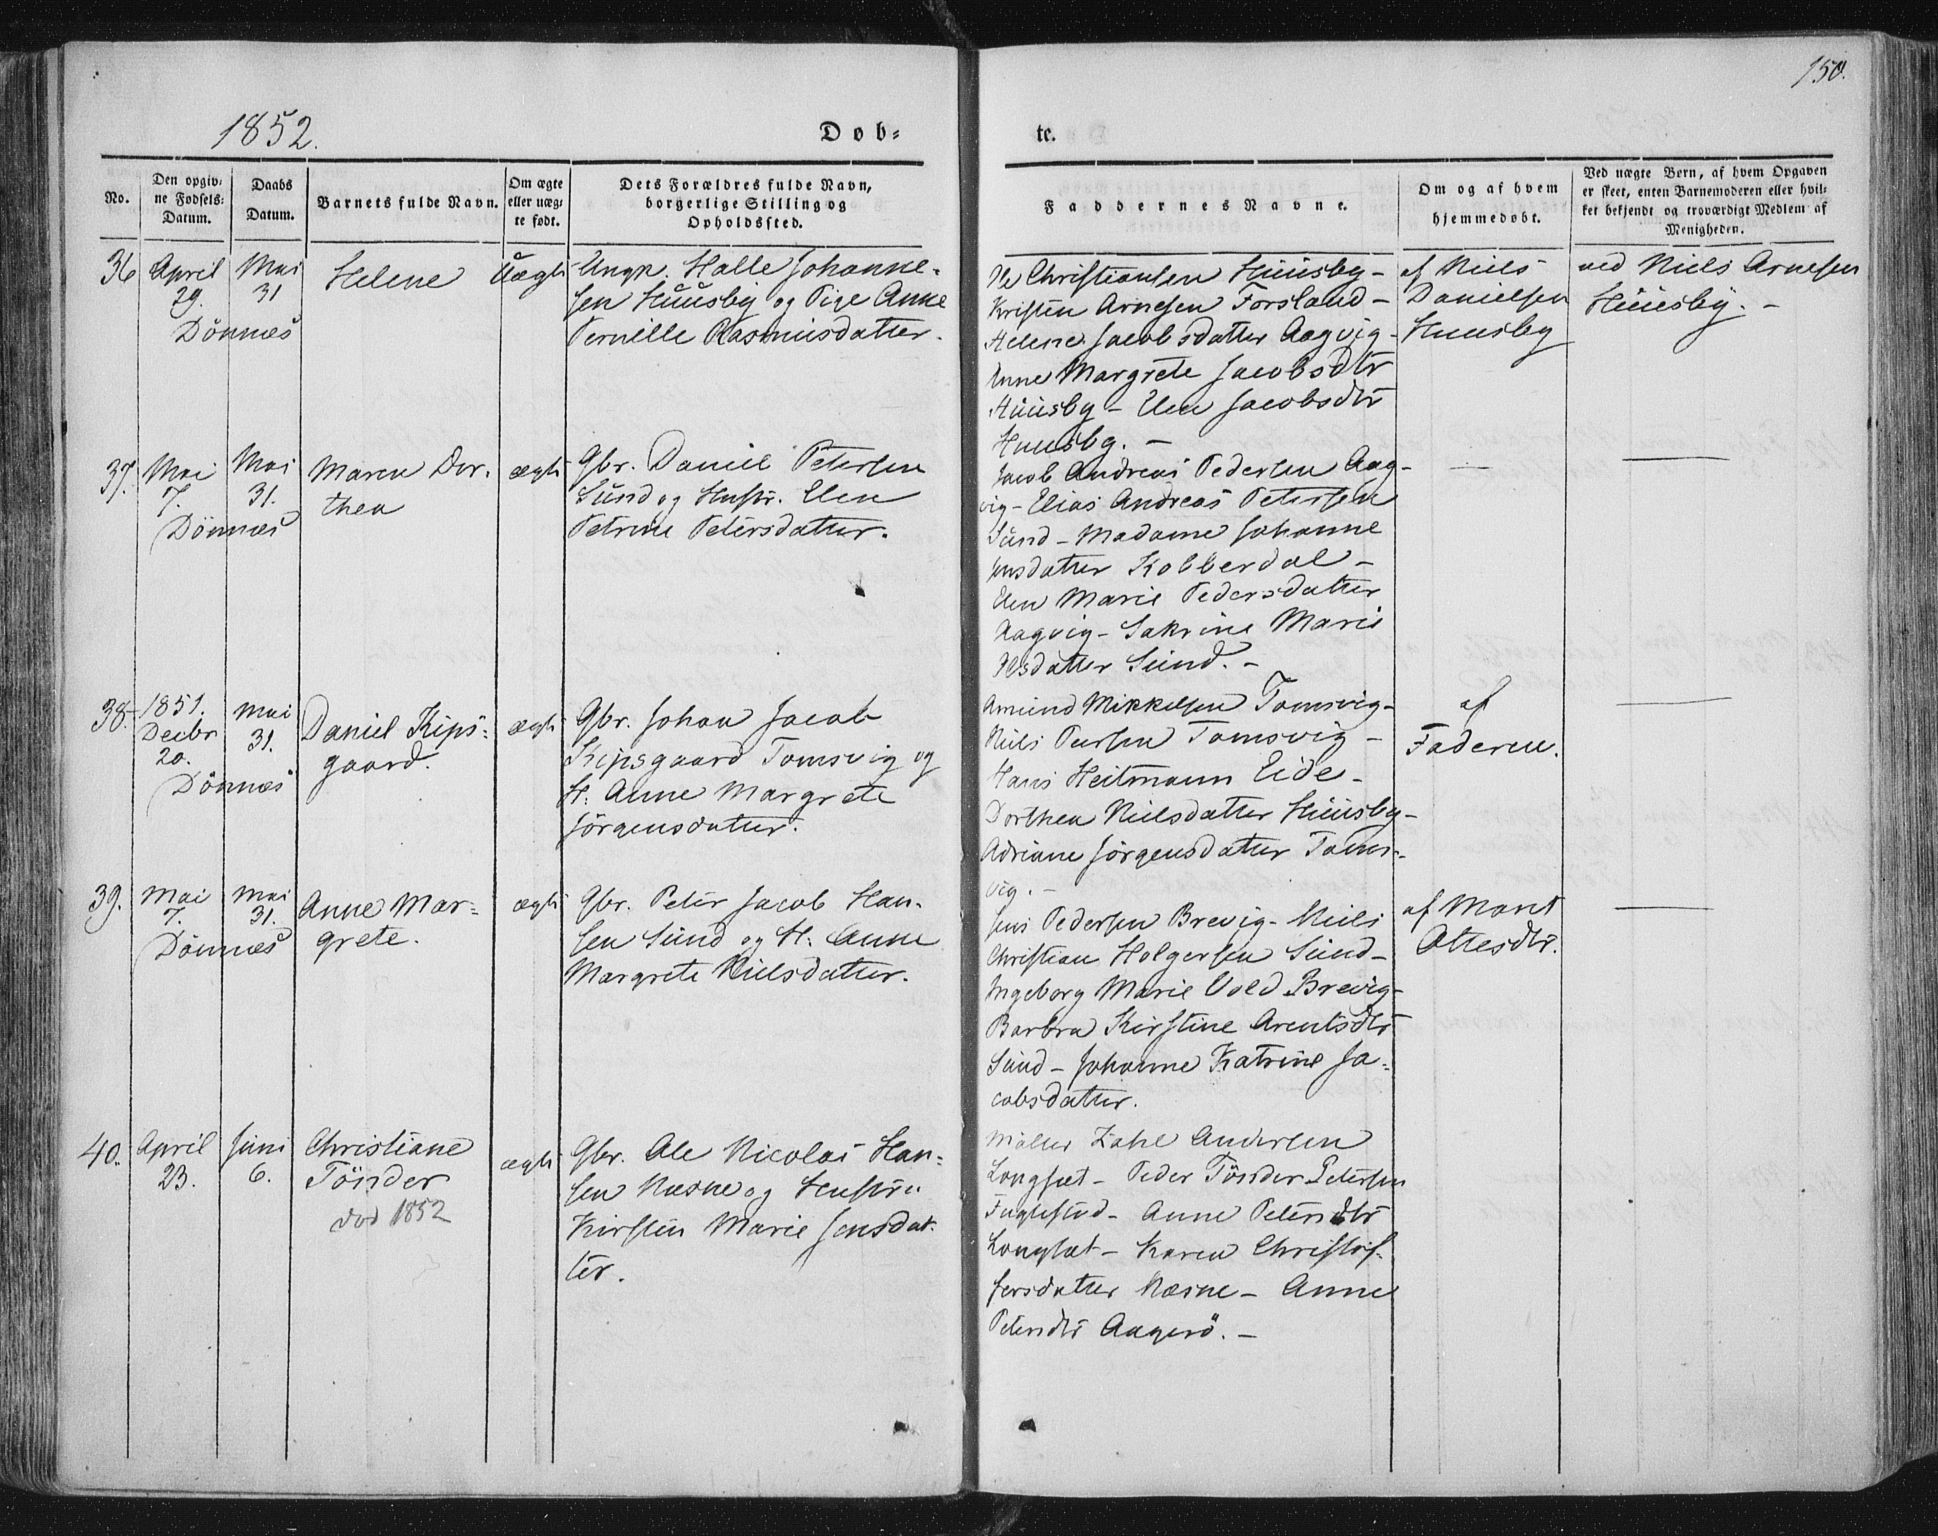 1852.
Døb-
No.
Den opgivne Fødsels-Datum.
Daabs Datum.
Barnets fulde Navn.
Om ægte eller uægte født.
Dets Forældres fulde Navn, borgerlige Stilling og Opholdssted.
36
April
29.
Dönnæs
Mai
31
Helene
Uægte
Ungk. Halle Johanne-
sen Huusby og Pige Anne
Pernille Rasmusdatter.
37.
Mai
7.
Dönnæs
Mai
31.
Maren Dor-
thea
ægte
Gbr. Daniel Petersen
Sund og Hustr. Elen
Petrine Petersdatter.
38.
1851.
Decbr
20.
Dönnæs
Mai
31.
Daniel Kips-
gaard.
ægte
Gbr. Johan Jacob
Kipsgaard Tomsvig og
H. Anne Margrete
Jörgensdatter.
39.
Mai
7.
Dönnæs
Mai
31.
Anne Mar-
grete.
ægte
Gbr. Peter Jacob Han-
sen Sund og H. Anne
Margrete Nielsdatter.
40.
April
23.
Juni
6.
Christiane
Tönder
död 1852
ægte
Gbr. Ole Nicolai Han-
sen Næsne og Hustru
Kirsten Marie Jensdat-
ter.
150.
te.
Faddernes Navne.
Om og af hvem hjemmedøbt.
Ved uægte Børn, af hvem Opgaven
er skeet, enten Barnemoderen eller hvil-
ket bekjendt og troværdigt Medlem af
Menigheden.
Ole Christiansen Huusby-
Kristen Arnesen Forsland-
Helene Jacobsdatter Aagvig-
Anne Margrete Jacobsdtr
Huusby- Elen Jacobsdtr
Huusby. -
af Niels
Danielsen
Huusby
ved Niels Arnesen
Huusby. -
Jacob Andreas Pedersen Aag-
vig- Elias Andreas Petersen
Sund- Madame Johanne
Jensdatter Kobberdal-
Elen Marie Pedersdatter
Aagvig- Sakrine Marie
Olsdatter Sund. -
Amund Mikkelsen Tomsvig-
Niels Persen Tomsvig-
Hans Heitmann Eide-
Dorthea Nielsdatter Huusby-
Adriane Jörgensdatter Toms-
vig. -
af
Faderen.
Jens Pedersen Brevig- Niels
Christian Holgersen Sund-
Ingeborg Marie Vold Brevig-
Barbra Kirstine Arentsdtr
Sund- Johanne Katrine Ja-
cobsdatter.
af Maret
Ottesdtr.
Möller Zahl Andersen
Langset- Peder Tönder Petersen
Fuglestad- Anne Petersdtr
Langset- Karen Christof-
fersdatter Næsne- Anne
Petersdtr Aagerö. -